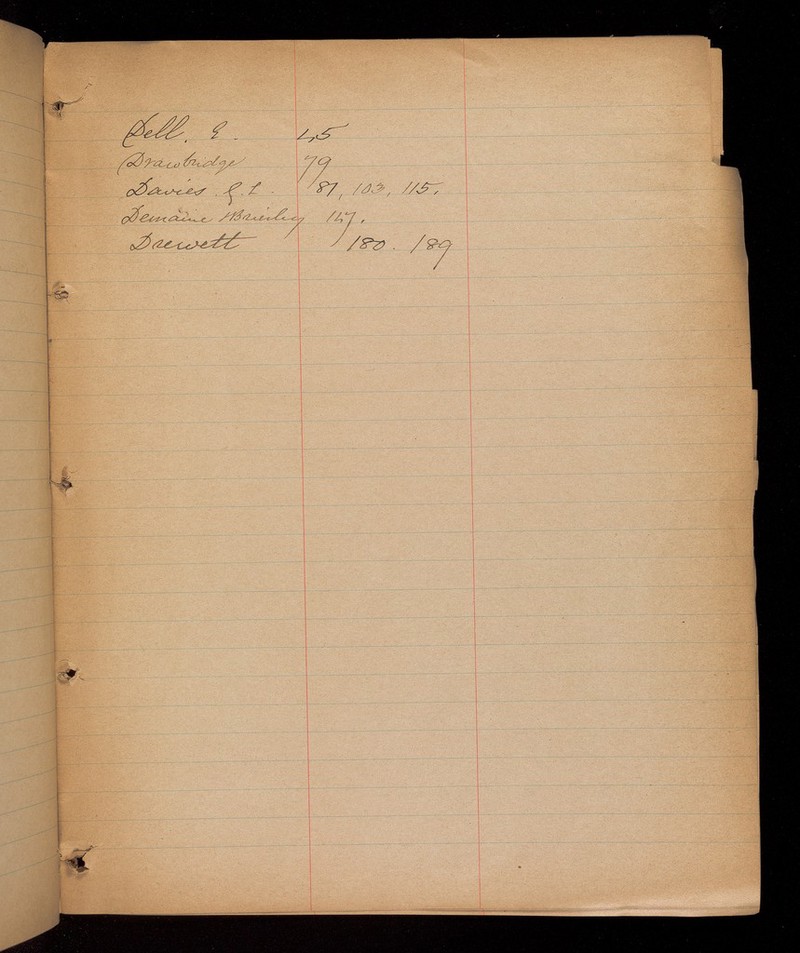 Dell. E. 45
Drawbridge 79
Davies. G. L. 81, 103, 115.
Demaine & Brierley 147.
Drewett 180. 189